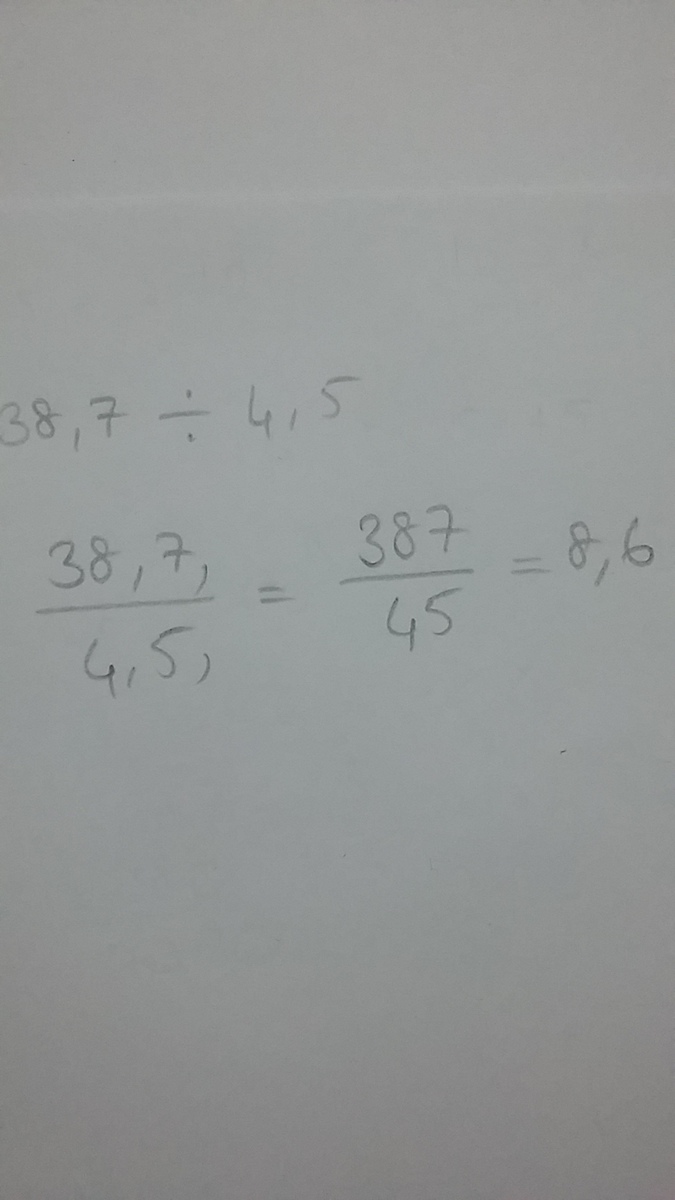 38,7 ÷ 4,5
38,7, / 4,5, = 387 / 45 = 8,6